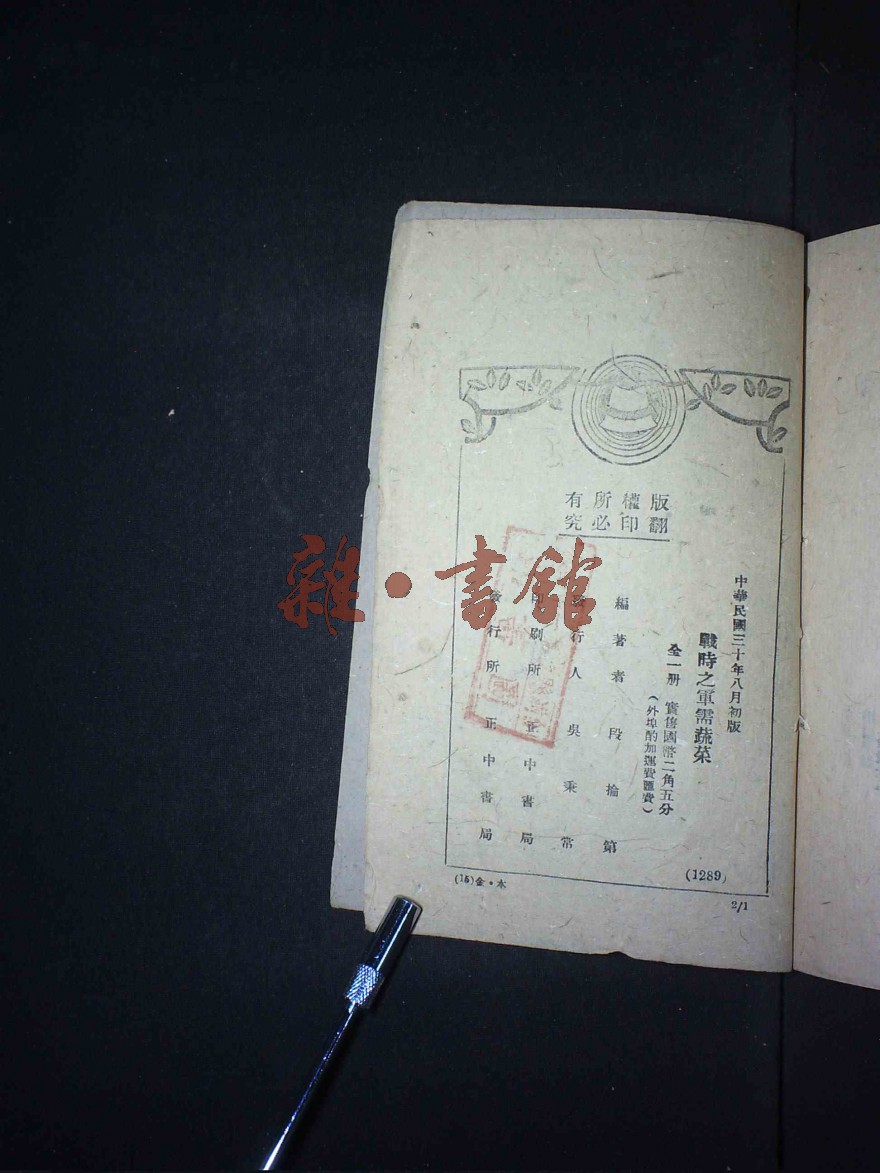 版權所有
翻印必究
中華民國三十年八月初版
戰時之軍需蔬菜
全一册 實售國幣二角五分
(外埠酌加運費匯費)
編著者 段掄第
發行人 吳秉常
印刷所 正中書局
發行所 正中書局
(1289)
(15)金·本
2/1
雜·書館